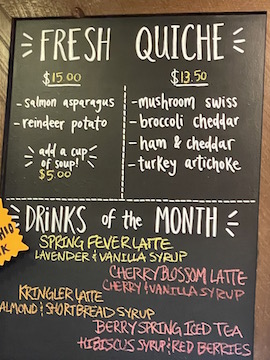 FRESH QUICHE
$15.00
- salmon asparagus
- reindeer potato
add a cup
of soup!
$5.00
$13.50
- mushroom swiss
- broccoli cheddar
- ham & cheddar
- turkey artichoke
DRINKS of the MONTH
SPRING FEVER LATTE
LAVENDER & VANILLA SYRUP
CHERRY BLOSSOM LATTE
CHERRY & VANILLA SYRUP
KRINGLER LATTE
ALMOND & SHORTBREAD SYRUP
BERRY SPRING ICED TEA
HIBISCUS SYRUP & RED BERRIES